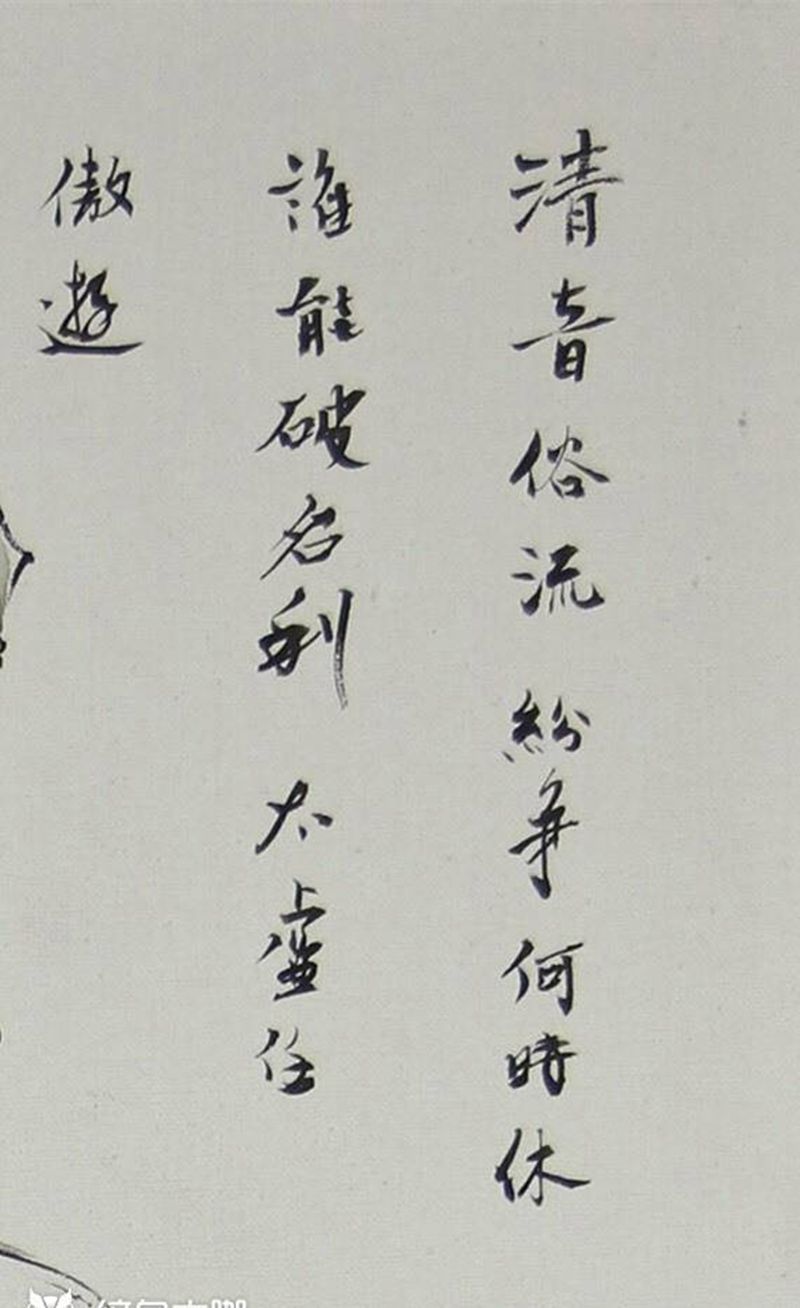 清音俗流紛爭何時休
誰能破名利太虛任
傲遊